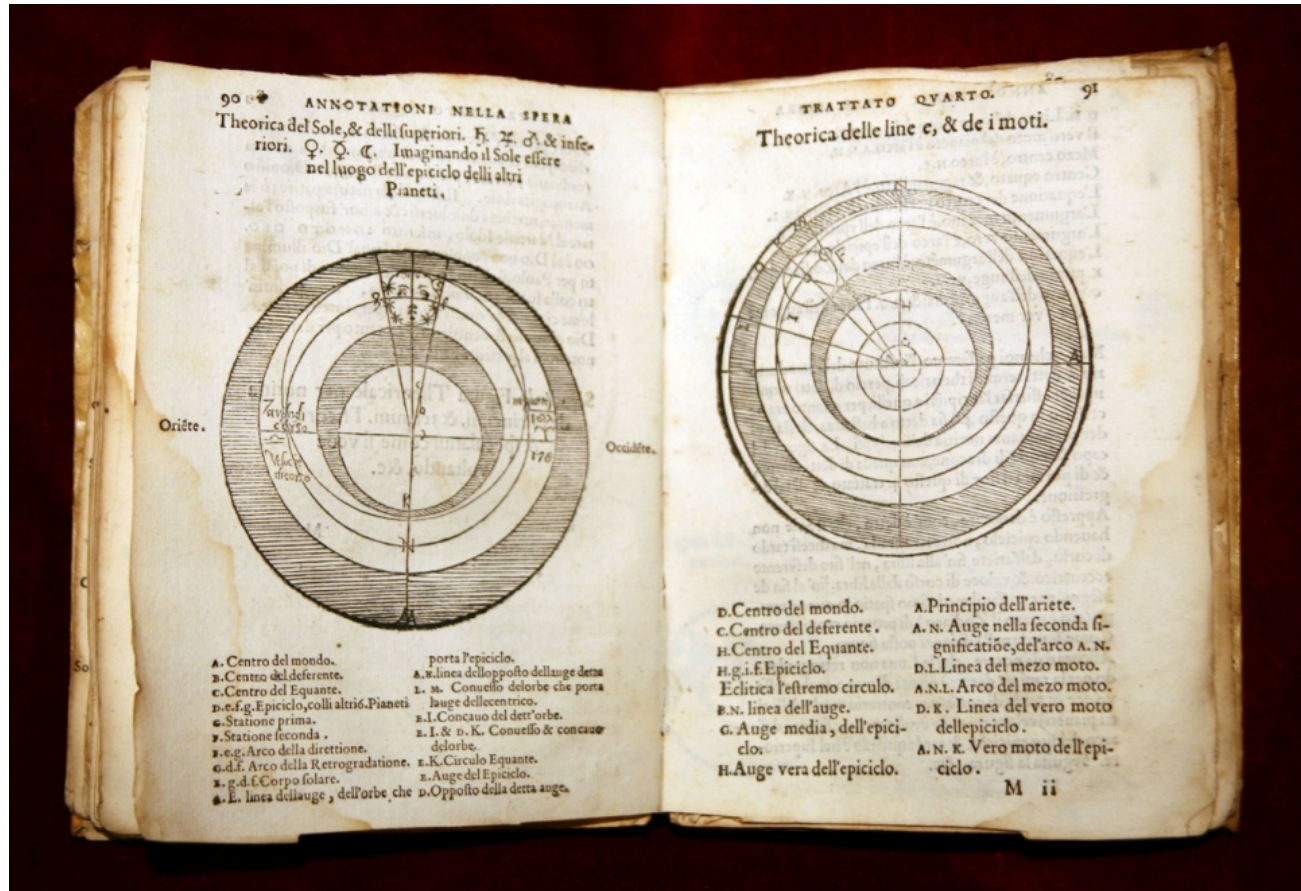 90
ANNOTATIONI NELLA SPERA
Theorica del Sole,& delli ſuperiori. ♄. ♃. ♂. & infe-
riori. ♀. ☿. ☾. Imaginando il Sole eſſere
nel luogo dell'epiciclo delli altri
Pianeti.
Oriēte.
Occidēte.
A. Centro del mondo.
B. Centro del deferente.
C. Centro del Equante.
D.e.f.g. Epiciclo, colli altri 6. Pianeti
G. Statione prima.
F. Statione ſeconda.
F.e.g. Arco della direttione.
G.d.f. Arco della Retrogradatione.
E.g.d.f. Corpo ſolare.
A.E. linea dellauge, dell'orbe, che
porta l'epiciclo.
A.N. linea dell oppoſto dell auge detta
L. M. Conueſſo delorbe che porta
lauge dellecentrico.
E.I. Concauo del dett'orbe.
E. I. & D. K. Conueſſo & concauo
delorbe.
E.K. Circulo Equante.
E. Auge del Epiciclo.
D. Oppoſto della detta auge.
TRATTATO QVARTO.
91
Theorica delle line e, & de i moti.
D. Centro del mondo.
C. Centro del deferente.
H. Centro del Equante.
H.g.i.f. Epiciclo.
Eclitica l'eſtremo circulo.
B.N. linea dell'auge.
G. Auge media, dell'epici-
clo.
H. Auge vera dell'epiciclo.
A. Principio dell'ariete.
A. N. Auge nella ſeconda ſi-
gnificatiõe, del'arco A. N.
D.L. Linea del mezo moto.
A.N.L. Arco del mezo moto.
D. K. Linea del vero moto
dellepiciclo.
A. N. K. Vero moto dell'epi-
ciclo.
M ii